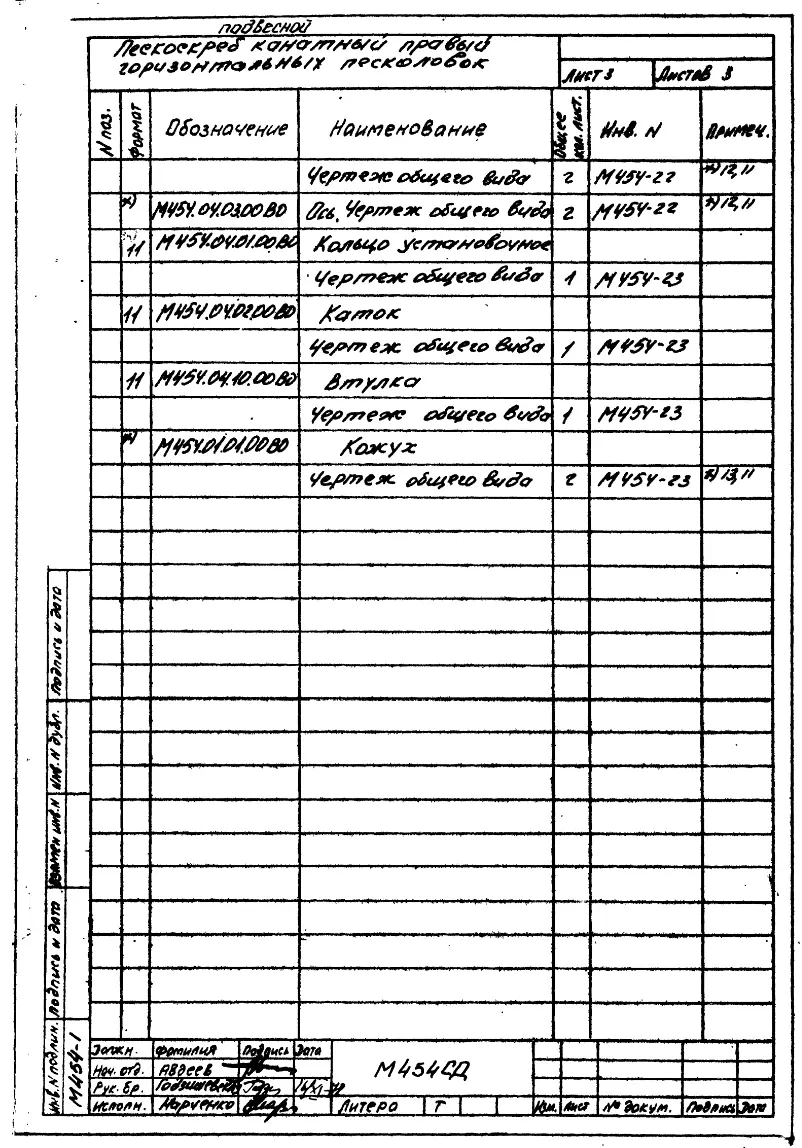 подвесной
Пескоскреб канатный правый
горизонтальных песколовок
Лист 3 Листов 3
N поз. Формат Обозначение Наименование Общее кол. лист. Инв. N Примеч.
Чертеж общего вида 2 М454-22 *) 12, 11
*) М454.04.03.00 ВО Ось. Чертеж общего вида 2 М454-22 *) 12, 11
11 М454.04.01.00 ВО Кольцо установочное
Чертеж общего вида 1 М454-23
11 М454.04.02.00 ВО Каток
Чертеж общего вида 1 М454-23
11 М454.04.10.00 ВО Втулка
Чертеж общего вида 1 М454-23
*) М454.01.01.00 ВО Кожух
Чертеж общего вида 2 М454-23 *) 13, 11
Подпись и дата
Инв. N дубл.
Взамен инв. N
Подпись и дата
Инв. N подлин.
М454-1
Должн. Фамилия Подпись Дата
Нач. отд. Авдеев
Рук. бр.
Исполн. Марченко
М454СД
Литера Т
Изм. Лист № докум. Подпись Дата